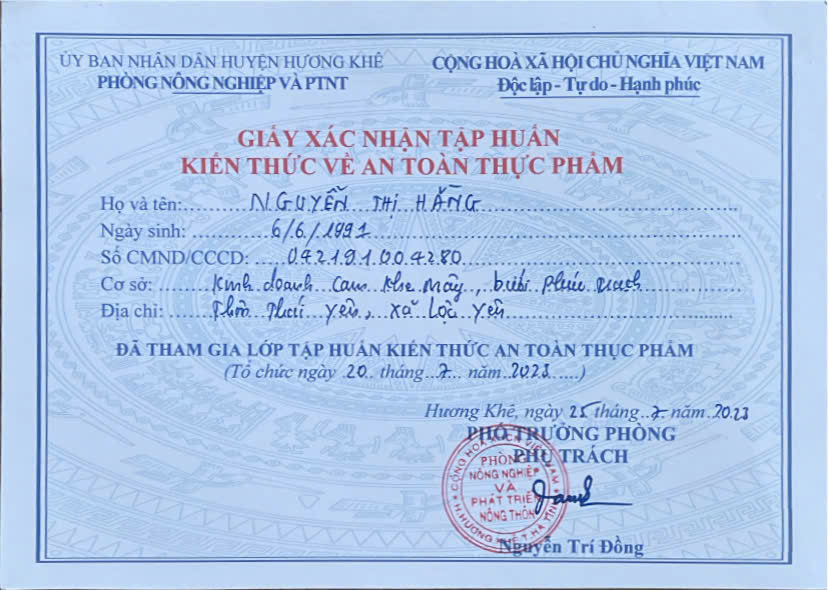 ỦY BAN NHÂN DÂN HUYỆN HƯƠNG KHÊ
PHÒNG NÔNG NGHIỆP VÀ PTNT
CỘNG HOÀ XÃ HỘI CHỦ NGHĨA VIỆT NAM
Độc lập - Tự do - Hạnh phúc
GIẤY XÁC NHẬN TẬP HUẤN
KIẾN THỨC VỀ AN TOÀN THỰC PHẨM
Họ và tên: NGUYỄN THỊ HẰNG
Ngày sinh: 6/6/1991
Số CMND/CCCD: 042191004280
Cơ sở: Kinh doanh Cam Khe Mây, bưởi Phúc Trạch
Địa chỉ: Thôn Thái Yên, xã Lộc Yên
ĐÃ THAM GIA LỚP TẬP HUẤN KIẾN THỨC AN TOÀN THỰC PHẨM
(Tổ chức ngày 20 tháng 7 năm 2023)
Hương Khê, ngày 25 tháng 7 năm 2023
PHÓ TRƯỞNG PHÒNG
PHỤ TRÁCH
CỘNG HOÀ X.H.C.N VIỆT NAM
PHÒNG
NÔNG NGHIỆP
VÀ
PHÁT TRIỂN
NÔNG THÔN
H.HƯƠNG KHÊ T.HÀ TĨNH
Nguyễn Trí Đồng